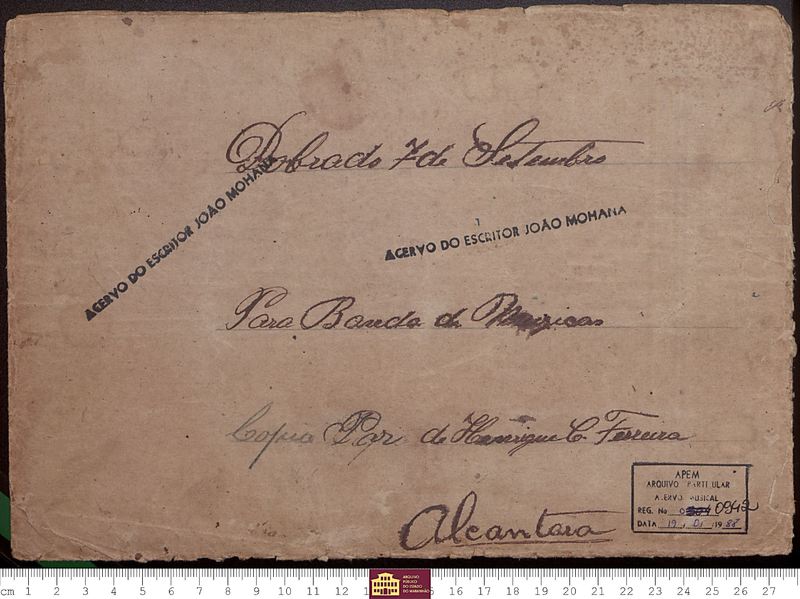 Dobrado 7 de Setembro
ACERVO DO ESCRITOR JOÃO MOHANA
ACERVO DO ESCRITOR JOÃO MOHANA
Para Banda de Muzicas
Copia Par de Henrique C. Ferreira
Alcantara
APEM
ARQUIVO PARTICULAR
ACERVO MUSICAL
REG. No 0942
DATA 19 / 01 / 1988
cm 1 2 3 4 5 6 7 8 9 10 11 12 13 15 16 17 18 19 20 21 22 23 24 25 26 27
ARQUIVO
PÚBLICO
DO ESTADO
DO MARANHÃO